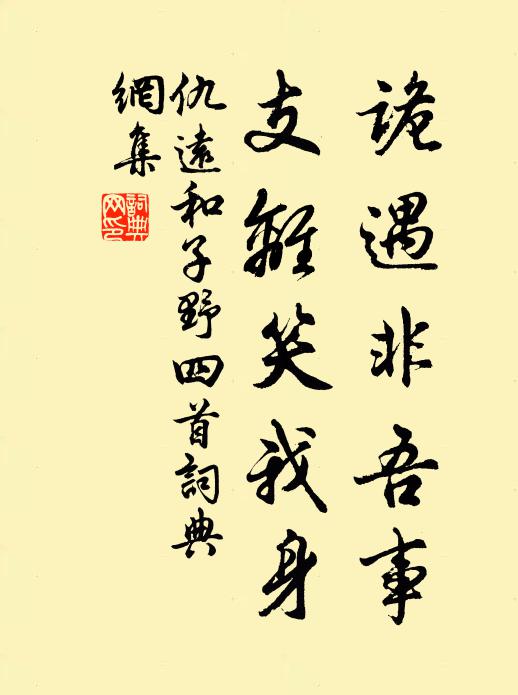 詭遇非吾事
支離笑我身
仇遠和子野四首詞典
網集
詞典
网印